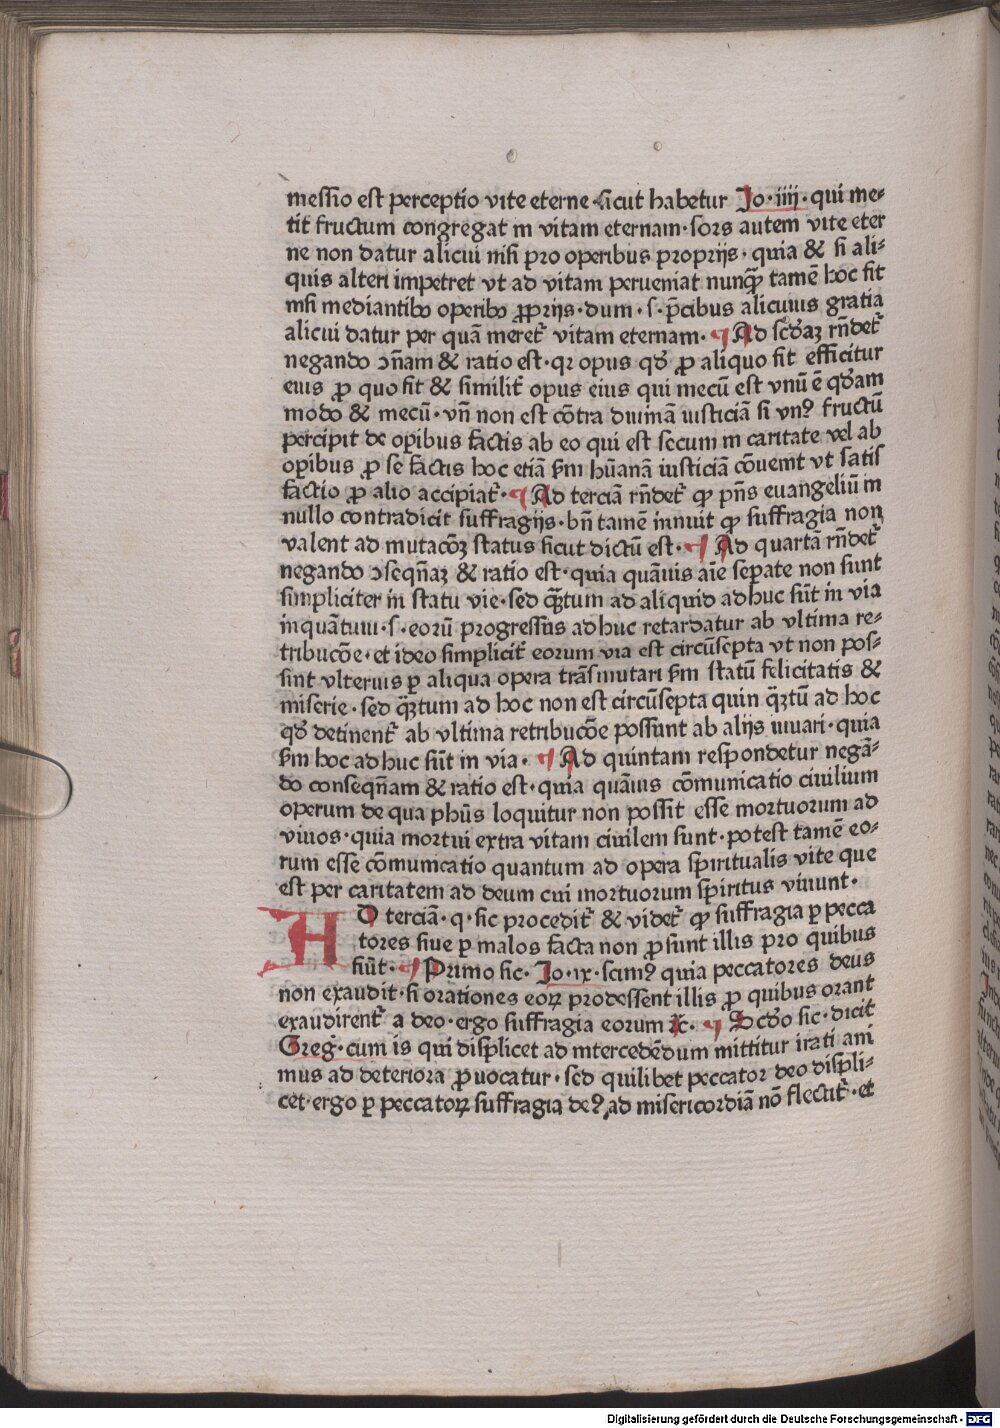 messio est perceptio vite eterne sicut habetur Jo·iiij·qui me-
tit fructum congregat in vitam eternam·sors autem vite eter
ne non datur alicui nisi pro operibus proprijs·quia & si ali-
quis alteri impetret vt ad vitam perueniat nunqꝫ tamē hoc fit
nisi mediantibꝰ operibꝰ ꝓprijs·dum·s·p̄cibus alicuius gratia
alicui datur per quā meret᷑ vitam eternam·¶Ad scḋaꝫ rn̄det᷑
negando ↄn̄am & ratio est·qꝛ opus qḋ ꝓ aliquo fit efficitur
eius ꝓ quo fit & similit᷑ opus eius qui mecū est vnū ē qḋam
modo & mecū·vn̄ non est cōtra diuinā iusticiā si vnꝰ fructū
percipit de oꝑibus factis ab eo qui est secum in caritate vel ab
oꝑibus ꝓ se factis hoc etiā ẜm hūanā iusticiā cōuenit vt satis
factio ꝓ alio accipiat᷑·¶Ad terciā rn̄det᷑ ꝙ pn̄s euangeliū in
nullo contradicit suffragijs·bn̄ tamē innuit ꝙ suffragia non
valent ad mutacōꝫ status sicut dictū est·¶Ad quartā rn̄det᷑
negando ↄseqn̄aꝫ & ratio est·quia quāuis aīe seꝑate non sunt
simpliciter in statu vie·sed qꝫtum ad aliquid adhuc sūt in via
inquātum·s·eorū progressus adhuc retardatur ab vltima re-
tribucōe·et ideo simplicit᷑ eorum via est circūsepta vt non pos-
sint vlterius ꝑ aliqua opera trāsmutari ẜm statū felicitatis &
miserie·sed qꝫtum ad hoc non est circūsepta quin qꝫtū ad hoc
qḋ detinent᷑ ab vltima retribucōe possunt ab alijs iuuari·quia
ẜm hoc adhuc sūt in via·¶Ad quintam respondetur negā-
do conseqn̄am & ratio est·quia quāuis cōmunicatio ciuilium
operum de qua phūs loquitur non possit esse mortuorum ad
viuos·quia mortui extra vitam ciuilem sunt·potest tamē eo-
rum esse cōmunicatio quantum ad opera spiritualis vite que
est per caritatem ad deum cui mortuorum spiritus viuunt·
AD terciā·q·sic procedit᷑ & videt᷑ ꝙ suffragia ꝑ pecca
tores siue ꝑ malos facta non ꝓsunt illis pro quibus
fiūt·¶Primo sic·Jo·ix·scimꝰ quia peccatores deus
non exaudit·si orationes eoꝝ prodessent illis ꝓ quibus orant
exaudirent᷑ a deo·ergo suffragia eorum ⁊c·¶Scḋo sic·dicit
Greg᷑·cum is qui displicet ad intercedēdum mittitur irati ani
mus ad deteriora ꝓuocatur·sed quilibet peccator deo displi-
cet·ergo ꝑ peccatoꝝ suffragia deꝰ ad misericordiā nō flectit᷑·et
Digitalisierung gefördert durch die Deutsche Forschungsgemeinschaft - DFG